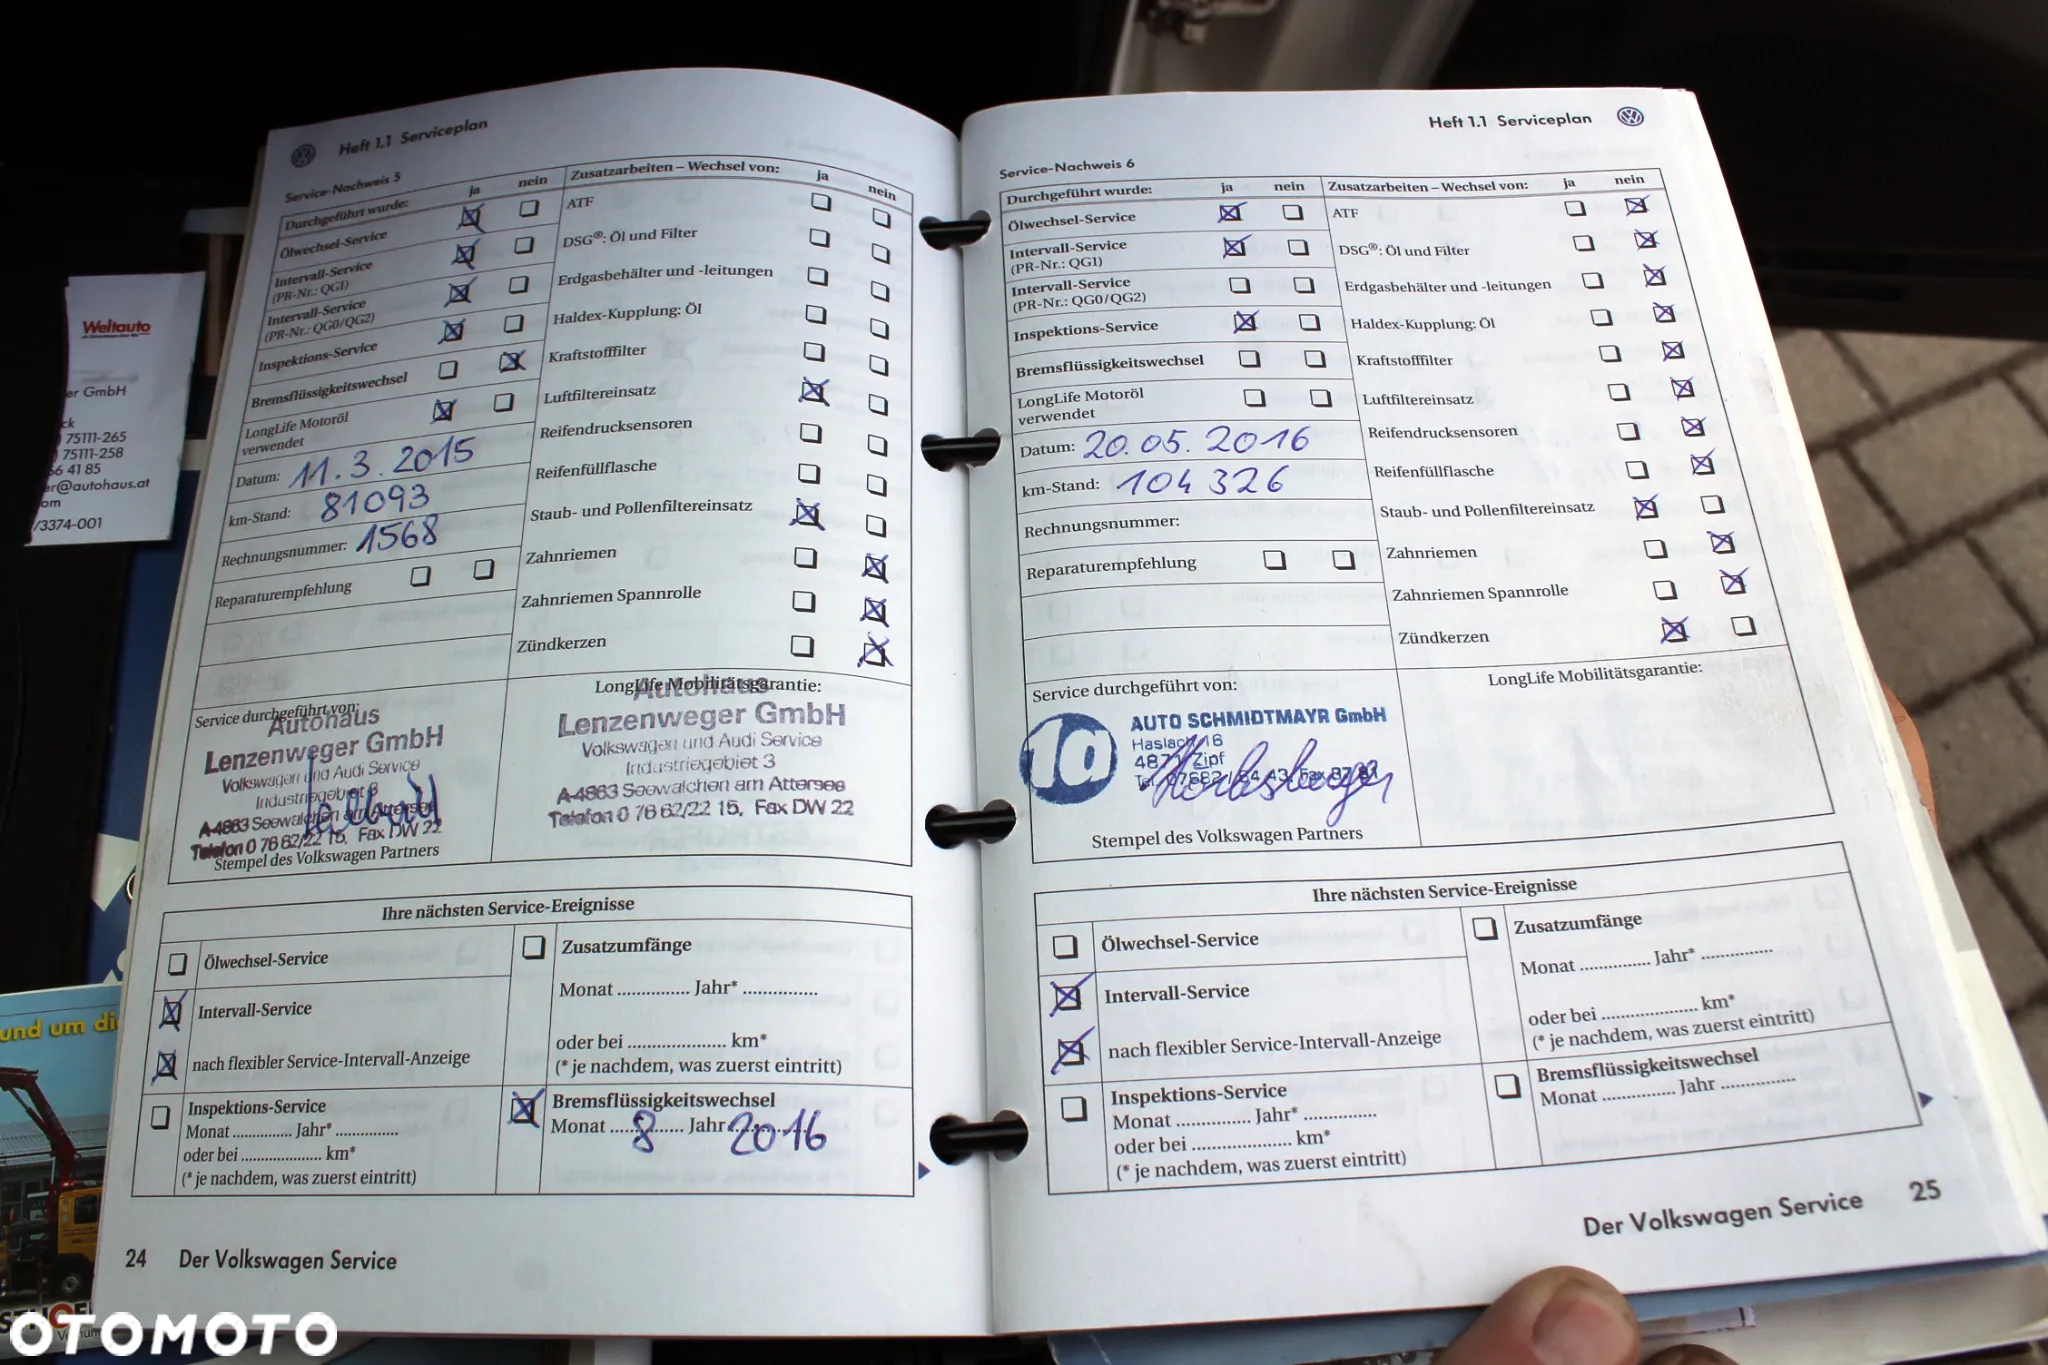 Heft 1.1 Serviceplan
Service-Nachweis 5
Durchgeführt wurde: ja nein
Ölwechsel-Service
Intervall-Service
(PR-Nr.: QG1)
Intervall-Service
(PR-Nr.: QG0/QG2)
Inspektions-Service
Bremsflüssigkeitswechsel
LongLife Motoröl
verwendet
Datum: 11.3.2015
km-Stand: 81093
Rechnungsnummer: 1568
Reparaturempfehlung
Zusatzarbeiten – Wechsel von: ja nein
ATF
DSG®: Öl und Filter
Erdgasbehälter und -leitungen
Haldex-Kupplung: Öl
Kraftstofffilter
Luftfiltereinsatz
Reifendrucksensoren
Reifenfüllflasche
Staub- und Pollenfiltereinsatz
Zahnriemen
Zahnriemen Spannrolle
Zündkerzen
Service durchgeführt von:
Autohaus
Lenzenweger GmbH
Volkswagen und Audi Service
Industriegebiet 3
A-4863 Seewalchen am Attersee
Telefon 0 76 62/22 15, Fax DW 22
Stempel des Volkswagen Partners
LongLife Mobilitätsgarantie:
Autohaus
Lenzenweger GmbH
Volkswagen und Audi Service
Industriegebiet 3
A-4863 Seewalchen am Attersee
Telefon 0 76 62/22 15, Fax DW 22
Ihre nächsten Service-Ereignisse
Ölwechsel-Service
Intervall-Service
nach flexibler Service-Intervall-Anzeige
Inspektions-Service
Monat ............... Jahr* ...............
oder bei .................... km*
(* je nachdem, was zuerst eintritt)
Zusatzumfänge
Monat ............... Jahr* ...............
oder bei .................... km*
(* je nachdem, was zuerst eintritt)
Bremsflüssigkeitswechsel
Monat 8 Jahr 2016
24 Der Volkswagen Service
Heft 1.1 Serviceplan
Service-Nachweis 6
Durchgeführt wurde: ja nein
Ölwechsel-Service
Intervall-Service
(PR-Nr.: QG1)
Intervall-Service
(PR-Nr.: QG0/QG2)
Inspektions-Service
Bremsflüssigkeitswechsel
LongLife Motoröl
verwendet
Datum: 20.05.2016
km-Stand: 104326
Rechnungsnummer:
Reparaturempfehlung
Zusatzarbeiten – Wechsel von: ja nein
ATF
DSG®: Öl und Filter
Erdgasbehälter und -leitungen
Haldex-Kupplung: Öl
Kraftstofffilter
Luftfiltereinsatz
Reifendrucksensoren
Reifenfüllflasche
Staub- und Pollenfiltereinsatz
Zahnriemen
Zahnriemen Spannrolle
Zündkerzen
Service durchgeführt von:
1a
AUTO SCHMIDTMAYR GmbH
Haslach 16
4871 Zipf
Stempel des Volkswagen Partners
LongLife Mobilitätsgarantie:
Ihre nächsten Service-Ereignisse
Ölwechsel-Service
Intervall-Service
nach flexibler Service-Intervall-Anzeige
Inspektions-Service
Monat ............... Jahr* ...............
oder bei .................... km*
(* je nachdem, was zuerst eintritt)
Zusatzumfänge
Monat ............... Jahr* ...............
oder bei .................... km*
(* je nachdem, was zuerst eintritt)
Bremsflüssigkeitswechsel
Monat ............... Jahr ...............
Der Volkswagen Service 25
Weltauto
er GmbH
75111-265
75111-258
41 85
er@autohaus.at
om
/3374-001
und um di
OTOMOTO